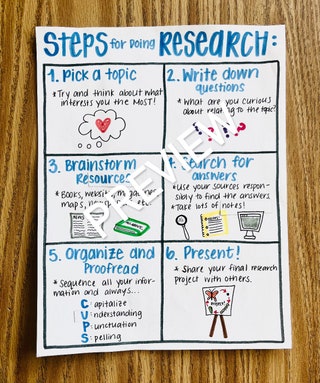 Steps for Doing RESEARCH:
1. Pick a topic
*Try and think about what
interests you the MOST!
2. Write down
questions
*What are you curious
about relating to the topic?
3. Brainstorm
Resources
*Books, websites, magazines
maps,
4. Search for
answers
*Use your sources respon-
sibly to find the answers.
*Take lots of notes!
5. Organize and
Proofread
*Sequence all your infor-
mation and always...
C: apitalize
U: nderstanding
P: unctuation
S: pelling
6. Present!
*Share your final research
project with others.
PREVIEW